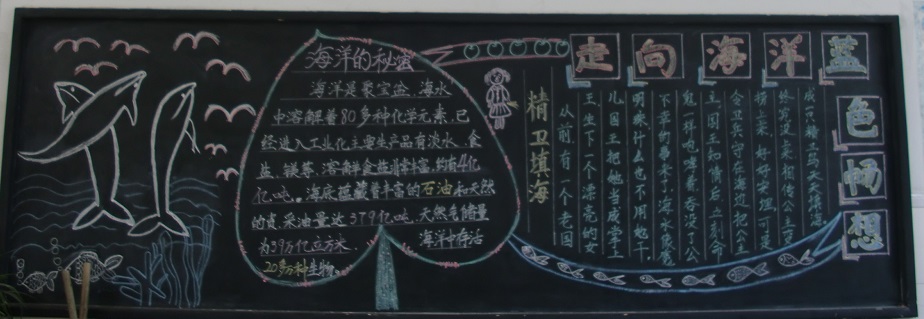 走向海洋
蓝色畅想
海洋的秘密
海洋是聚宝盆、海水
中溶解着80多种化学元素,已
经进入工业化主要生产品有淡水、食
盐、镁等、溶解食盐非常丰富,约有4亿
亿吨。海底蕴藏着丰富的石油和天然
的贡,采油量达379亿吨,天然气储量
为39万亿立方米。海洋中存活
20多万种生物。
精卫填海
从前,有一个老国
王,生下一个漂亮的女
儿,国王把她当成掌上
明珠,什么也不用她干,
不幸的事来了,水
鬼一样咆哮着,吞没了公
主,国王知情后,立刻命
令卫兵守在海边把公主
捞上来,好好安埋,可是